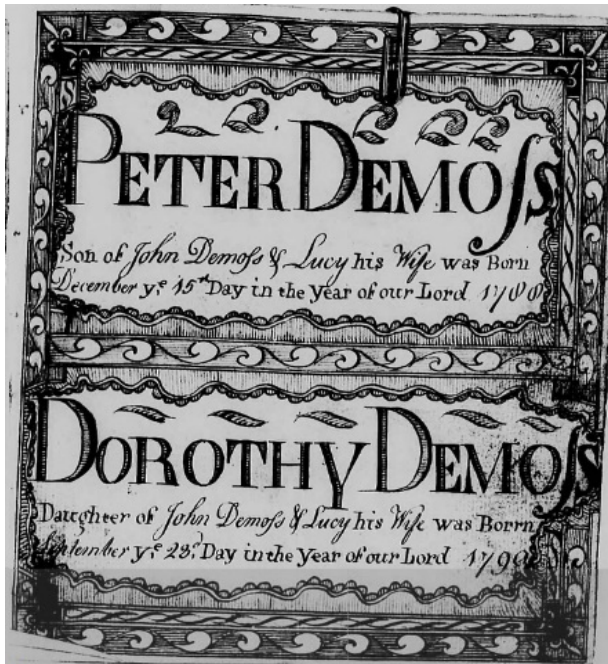 PETER DEMOſS
Son of John Demoſs & Lucy his Wife was Born
December yͤ 15th Day in the year of our Lord 1788
DOROTHY DEMOſS
Daughter of John Demoſs & Lucy his Wife was Borrn
September yͤ 23d Day in the year of our Lord